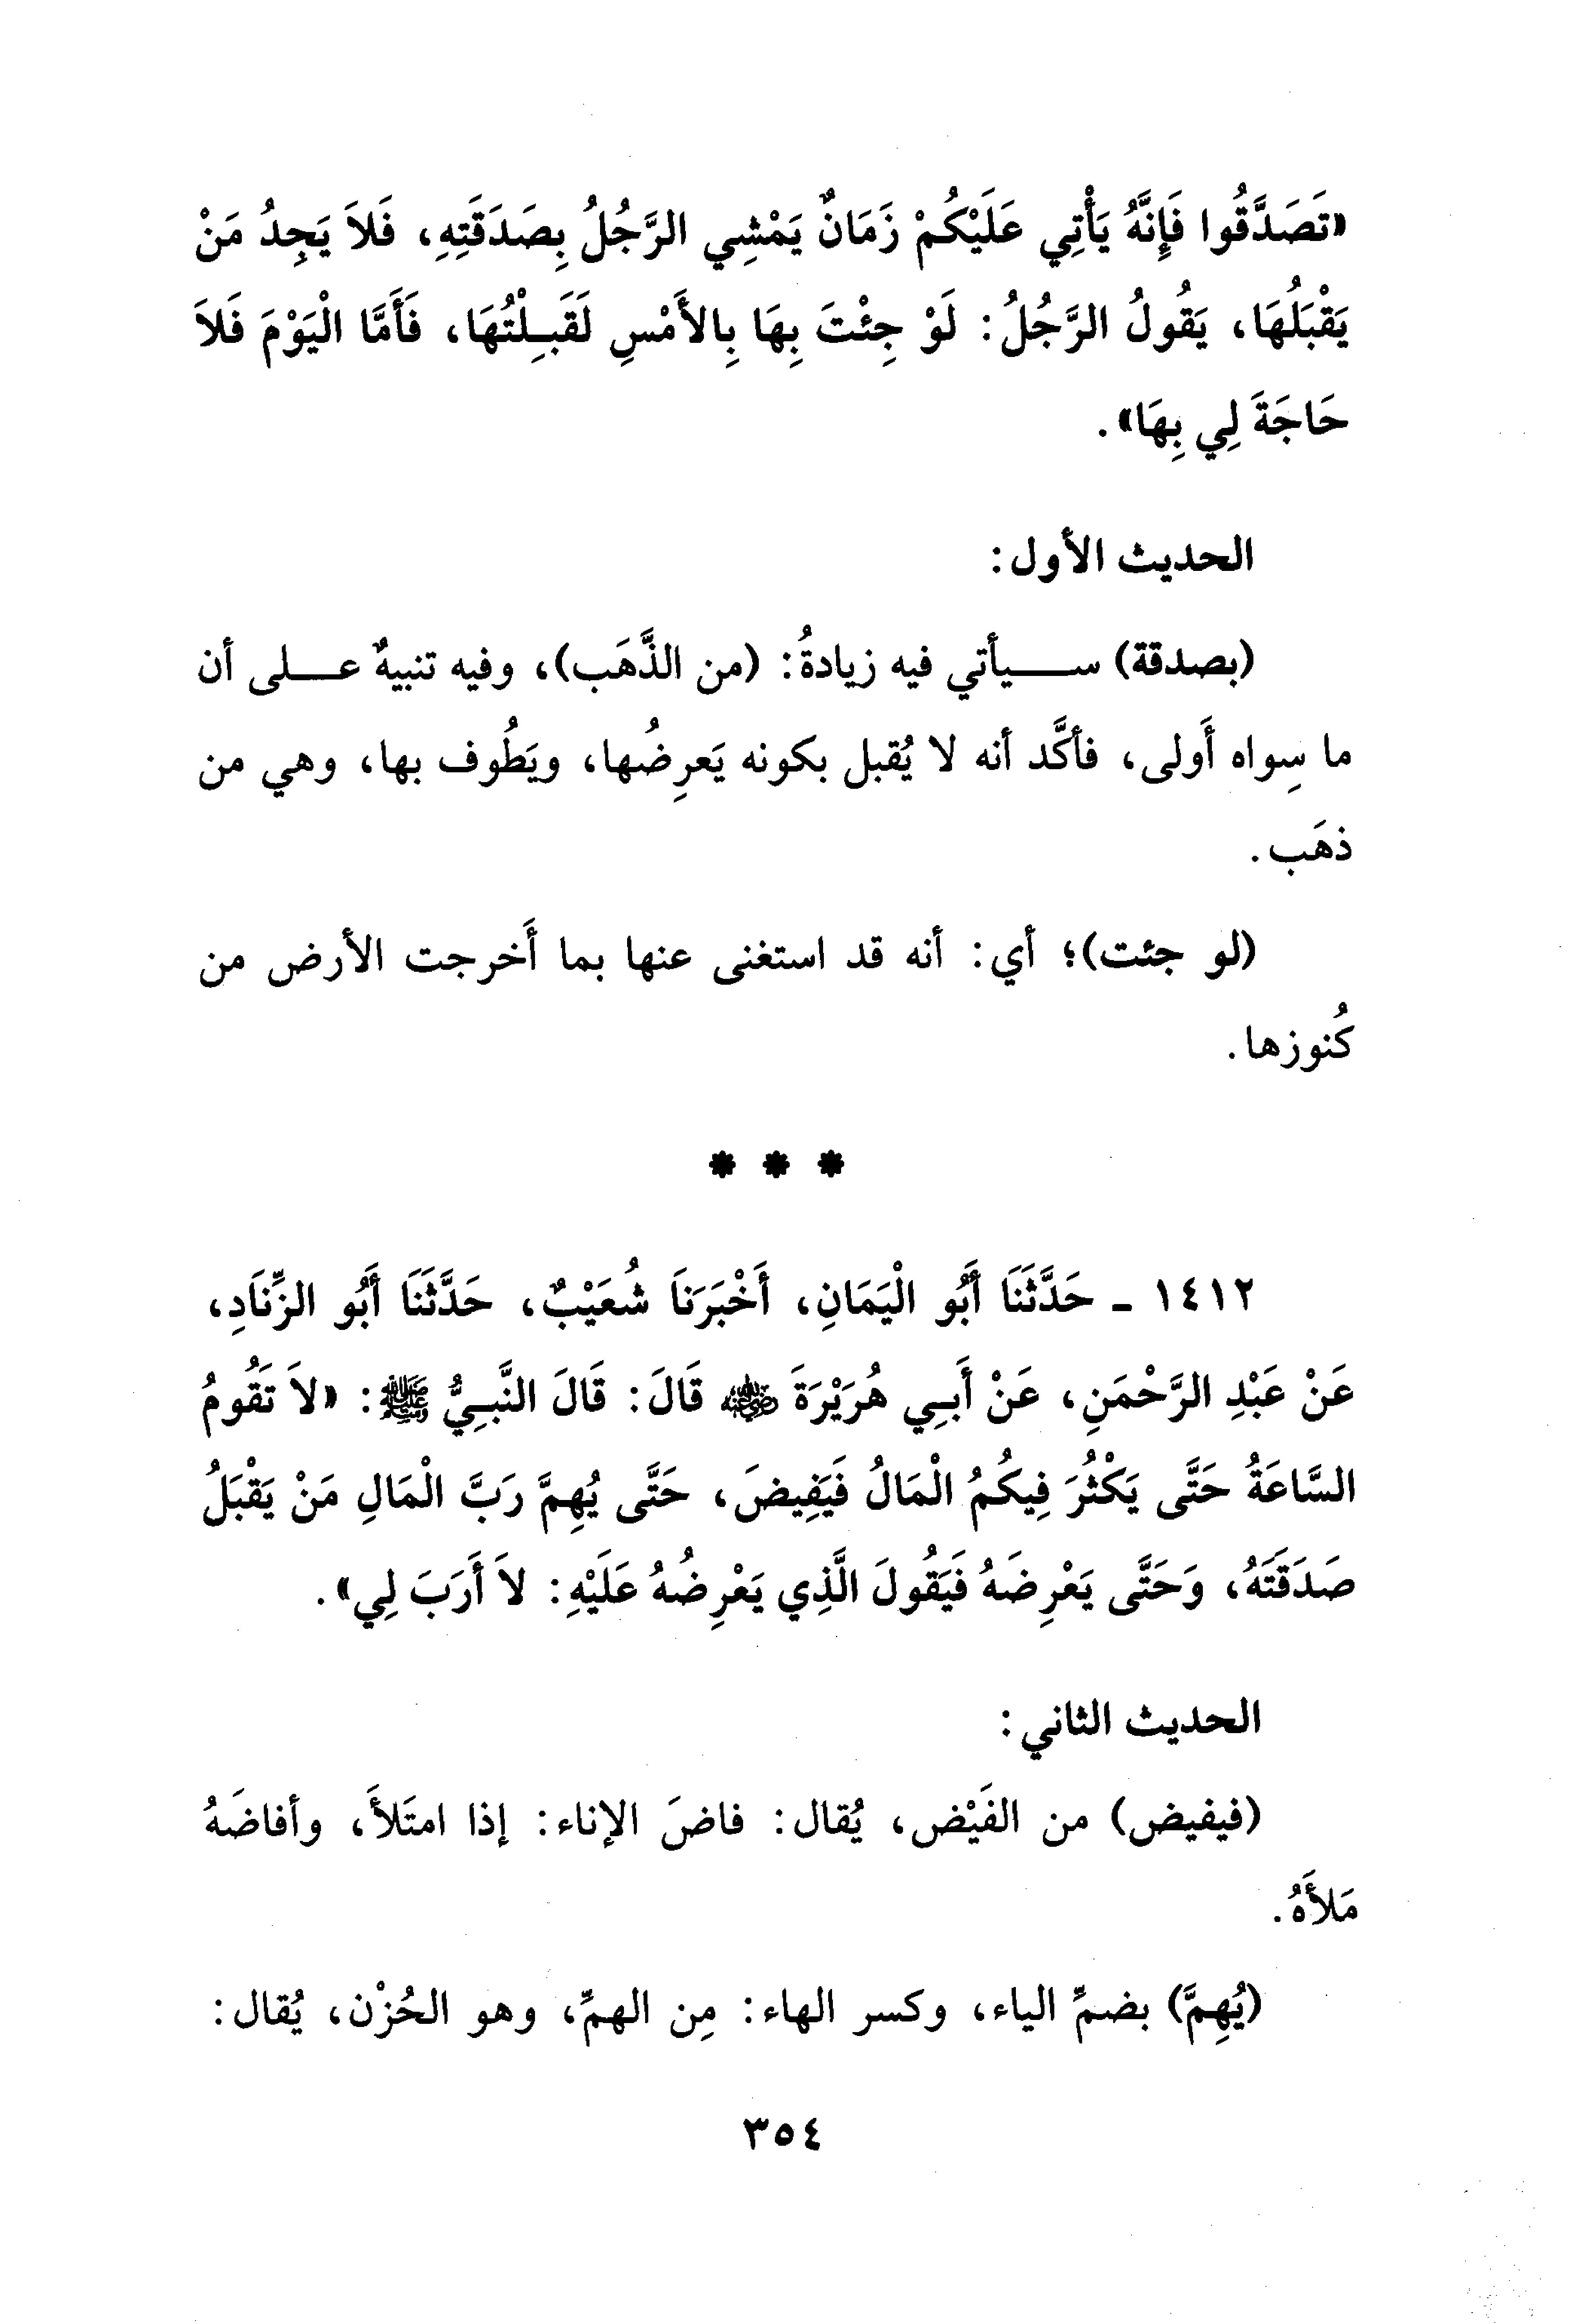 «تَصَدَّقُوا فَإِنَّهُ يَأْتِي عَلَيْكُمْ زَمَانٌ يَمْشِي الرَّجُلُ بِصَدَقَتِهِ، فَلاَ يَجِدُ مَنْ
يَقْبَلُهَا، يَقُولُ الرَّجُلُ: لَوْ جِئْتَ بِهَا بِالأَمْسِ لَقَبِلْتُهَا، فَأَمَّا الْيَوْمَ فَلاَ
حَاجَةَ لِي بِهَا».
الحديث الأول:
(بصدقة) سيأتي فيه زيادةُ: (من الذَّهَب)، وفيه تنبيهٌ على أن
ما سِواه أَولى، فأكَّد أنه لا يُقبل بكونه يَعرِضُها، ويَطُوف بها، وهي من
ذهَب.
(لو جئت)؛ أي: أنه قد استغنى عنها بما أَخرجت الأرض من
كُنوزها.
* * *
١٤١٢ - حَدَّثَنَا أَبُو الْيَمَانِ، أَخْبَرَنَا شُعَيْبٌ، حَدَّثَنَا أَبُو الزِّنَادِ،
عَنْ عَبْدِ الرَّحْمَنِ، عَنْ أَبِي هُرَيْرَةَ رضي الله عنه قَالَ: قَالَ النَّبِيُّ ﷺ: «لاَ تَقُومُ
السَّاعَةُ حَتَّى يَكْثُرَ فِيكُمُ الْمَالُ فَيَفِيضَ، حَتَّى يُهِمَّ رَبَّ الْمَالِ مَنْ يَقْبَلُ
صَدَقَتَهُ، وَحَتَّى يَعْرِضَهُ فَيَقُولَ الَّذِي يَعْرِضُهُ عَلَيْهِ: لاَ أَرَبَ لِي».
الحديث الثاني:
(فيفيض) من الفَيْض، يُقال: فاضَ الإناء: إذا امتَلأَ، وأفاضَهُ
مَلأَهُ.
(يُهِمَّ) بضمِّ الياء، وكسر الهاء: مِن الهمِّ، وهو الحُزْن، يُقال:
٣٥٤